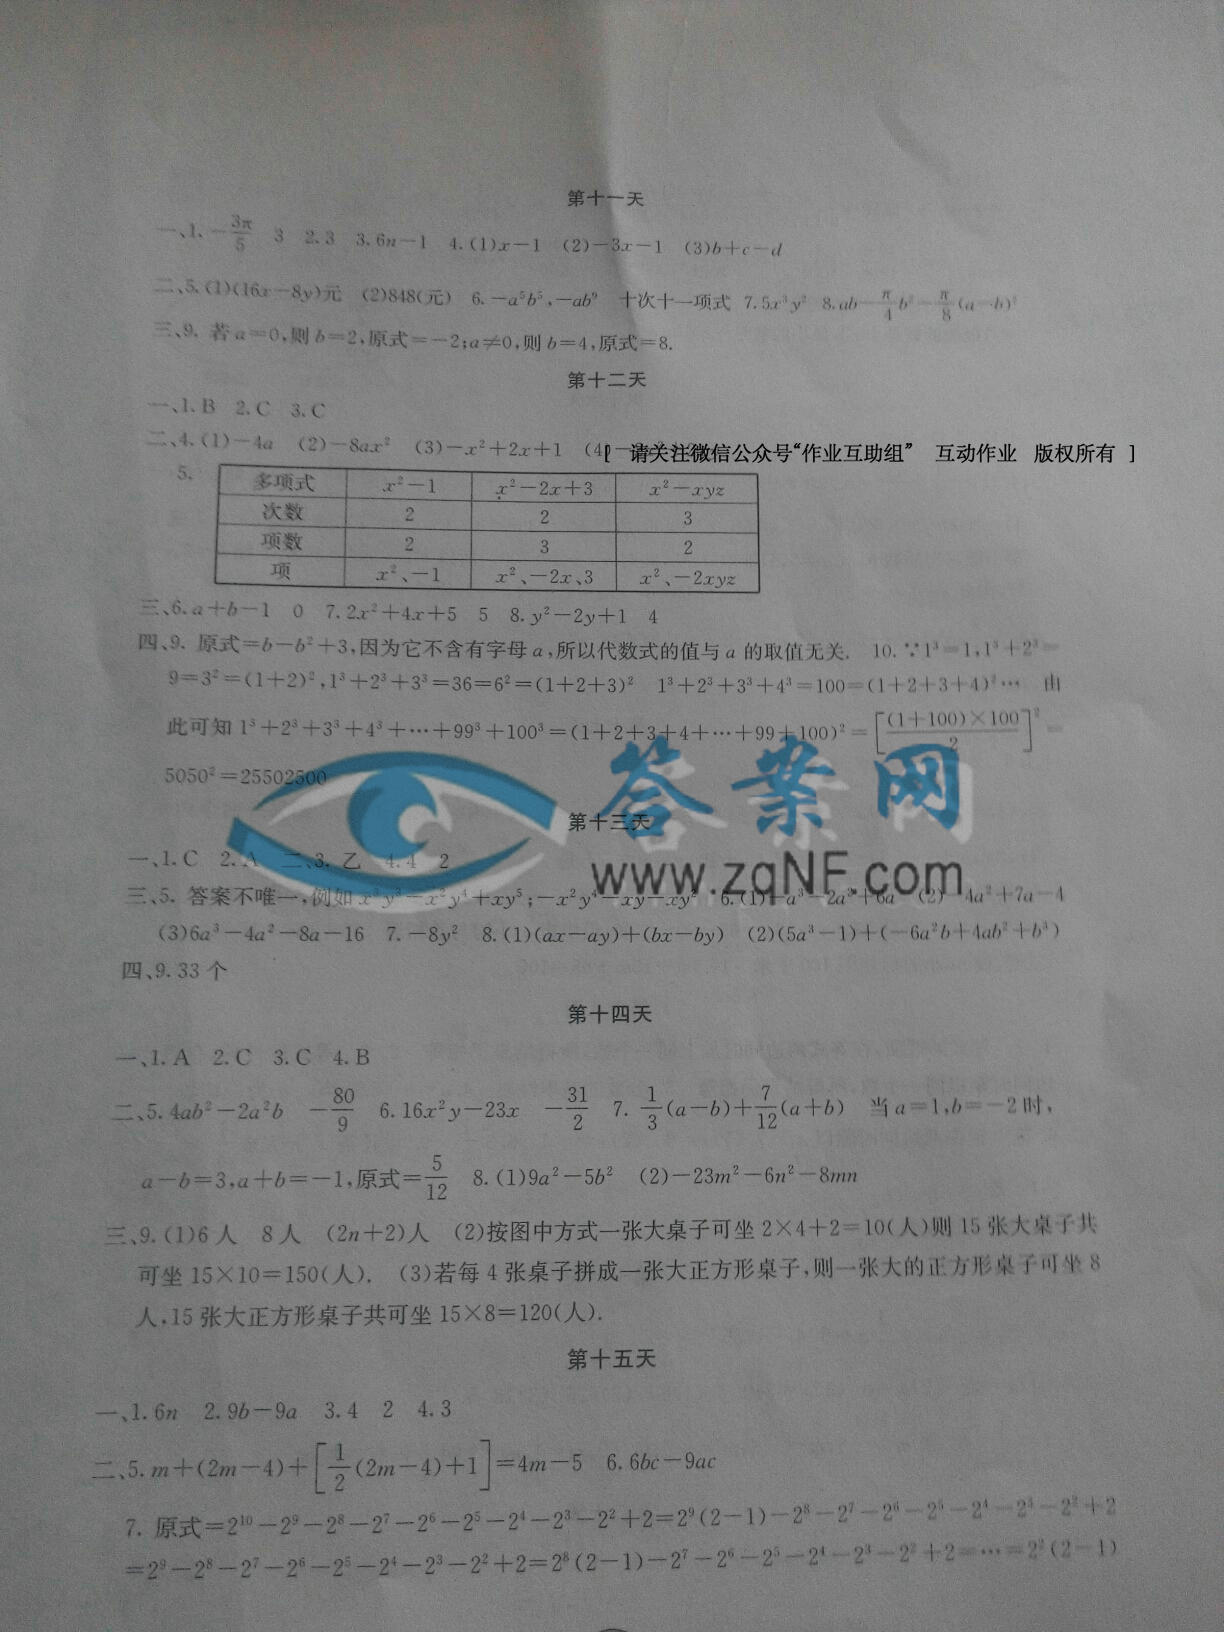 第十一天
一、1. −3π/5 3 2. 3 3. 6n−1 4. (1)x−1 (2)−3x−1 (3)b+c−d
二、5. (1)(16x−8y)元 (2)848(元) 6. −a⁵b⁵,−ab⁹ 十次十一项式 7. 5x³y² 8. ab−π/4 b²−π/8(a−b)²
三、9. 若a=0,则b=2,原式=−2;a≠0,则b=4,原式=8.
第十二天
一、1. B 2. C 3. C
二、4. (1)−4a (2)−8ax² (3)−x²+2x+1 (4)
[ 请关注微信公众号“作业互助组” 互动作业 版权所有 ]
5.
多项式 x²−1 x²−2x+3 x²−xyz
次数 2 2 3
项数 2 3 2
项 x²、−1 x²、−2x、3 x²、−2xyz
三、6. a+b−1 0 7. 2x²+4x+5 5 8. y²−2y+1 4
四、9. 原式=b−b²+3,因为它不含有字母a,所以代数式的值与a的取值无关. 10. ∵1³=1,1³+2³=
9=3²=(1+2)²,1³+2³+3³=36=6²=(1+2+3)² 1³+2³+3³+4³=100=(1+2+3+4)²… 由
此可知1³+2³+3³+4³+…+99³+100³=(1+2+3+4+…+99+100)²=[(1+100)×100/2]²=
5050²=25502500
答案网
www.zqNF.com
第十三天
一、1. C 2. A 二、3. 乙 4. 4 2
三、5. 答案不唯一,例如x³y³−x²y⁴+xy⁵;−x²y⁴−xy−xy² 6. (1) (2) 4a²+7a−4
(3)6a³−4a²−8a−16 7. −8y² 8. (1)(ax−ay)+(bx−by) (2)(5a³−1)+(−6a²b+4ab²+b³)
四、9. 33个
第十四天
一、1. A 2. C 3. C 4. B
二、5. 4ab²−2a²b −80/9 6. 16x²y−23x −31/2 7. 1/3(a−b)+7/12(a+b) 当a=1,b=−2时,
a−b=3,a+b=−1,原式=5/12 8. (1)9a²−5b² (2)−23m²−6n²−8mn
三、9. (1)6人 8人 (2n+2)人 (2)按图中方式一张大桌子可坐2×4+2=10(人)则15张大桌子共
可坐15×10=150(人). (3)若每4张桌子拼成一张大正方形桌子,则一张大的正方形桌子可坐8
人,15张大正方形桌子共可坐15×8=120(人).
第十五天
一、1. 6n 2. 9b−9a 3. 4 2 4. 3
二、5. m+(2m−4)+[1/2(2m−4)+1]=4m−5 6. 6bc−9ac
7. 原式=2¹⁰−2⁹−2⁸−2⁷−2⁶−2⁵−2⁴−2³−2²+2=2⁹(2−1)−2⁸−2⁷−2⁶−2⁵−2⁴−2³−2²+2
=2⁹−2⁸−2⁷−2⁶−2⁵−2⁴−2³−2²+2=2⁸(2−1)−2⁷−2⁶−2⁵−2⁴−2³−2²+2=…=2²(2−1)